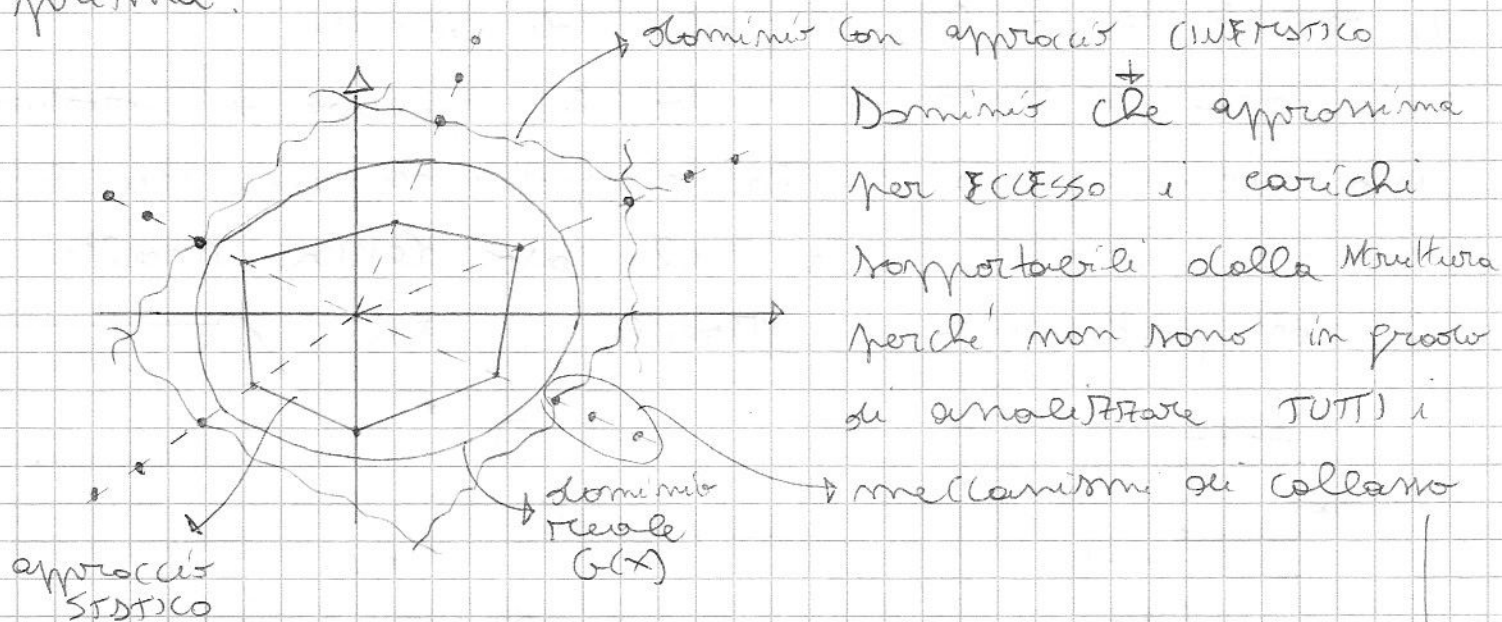 dominio con approccio CINEMATICO
Dominio che approssima
per ECCESSO i carichi
sopportabili dalla struttura
perché non sono in grado
di analizzare TUTTI i
meccanismi di collasso
dominio
reale
G(X)
approccio
STATICO